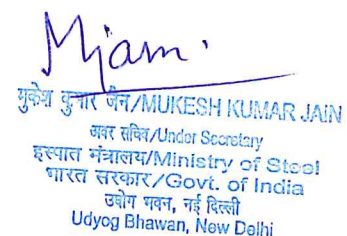 Mjain.
मुकेश कुमार जैन/MUKESH KUMAR JAIN
अवर सचिव/Under Secretary
इस्पात मंत्रालय/Ministry of Steel
भारत सरकार/Govt. of India
उद्योग भवन, नई दिल्ली
Udyog Bhawan, New Delhi